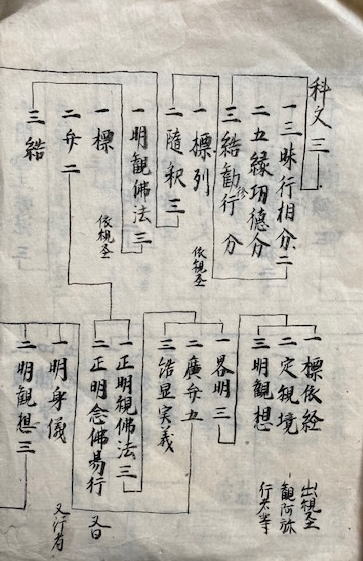 科文三
一三昧行相分二
二五縁功德分
三結勸修行分
一標列
依観圣
二隨釈三
一明観佛法三
依観圣
一標
二弁二
三結
一標依経
出観圣
二定観境
観阿弥
三明観想
行不等
一畧明三
二廣弁五
三結显实義
一正明観佛法三
二正明念佛易行
又曰
一明身儀
又行者
二明観想三